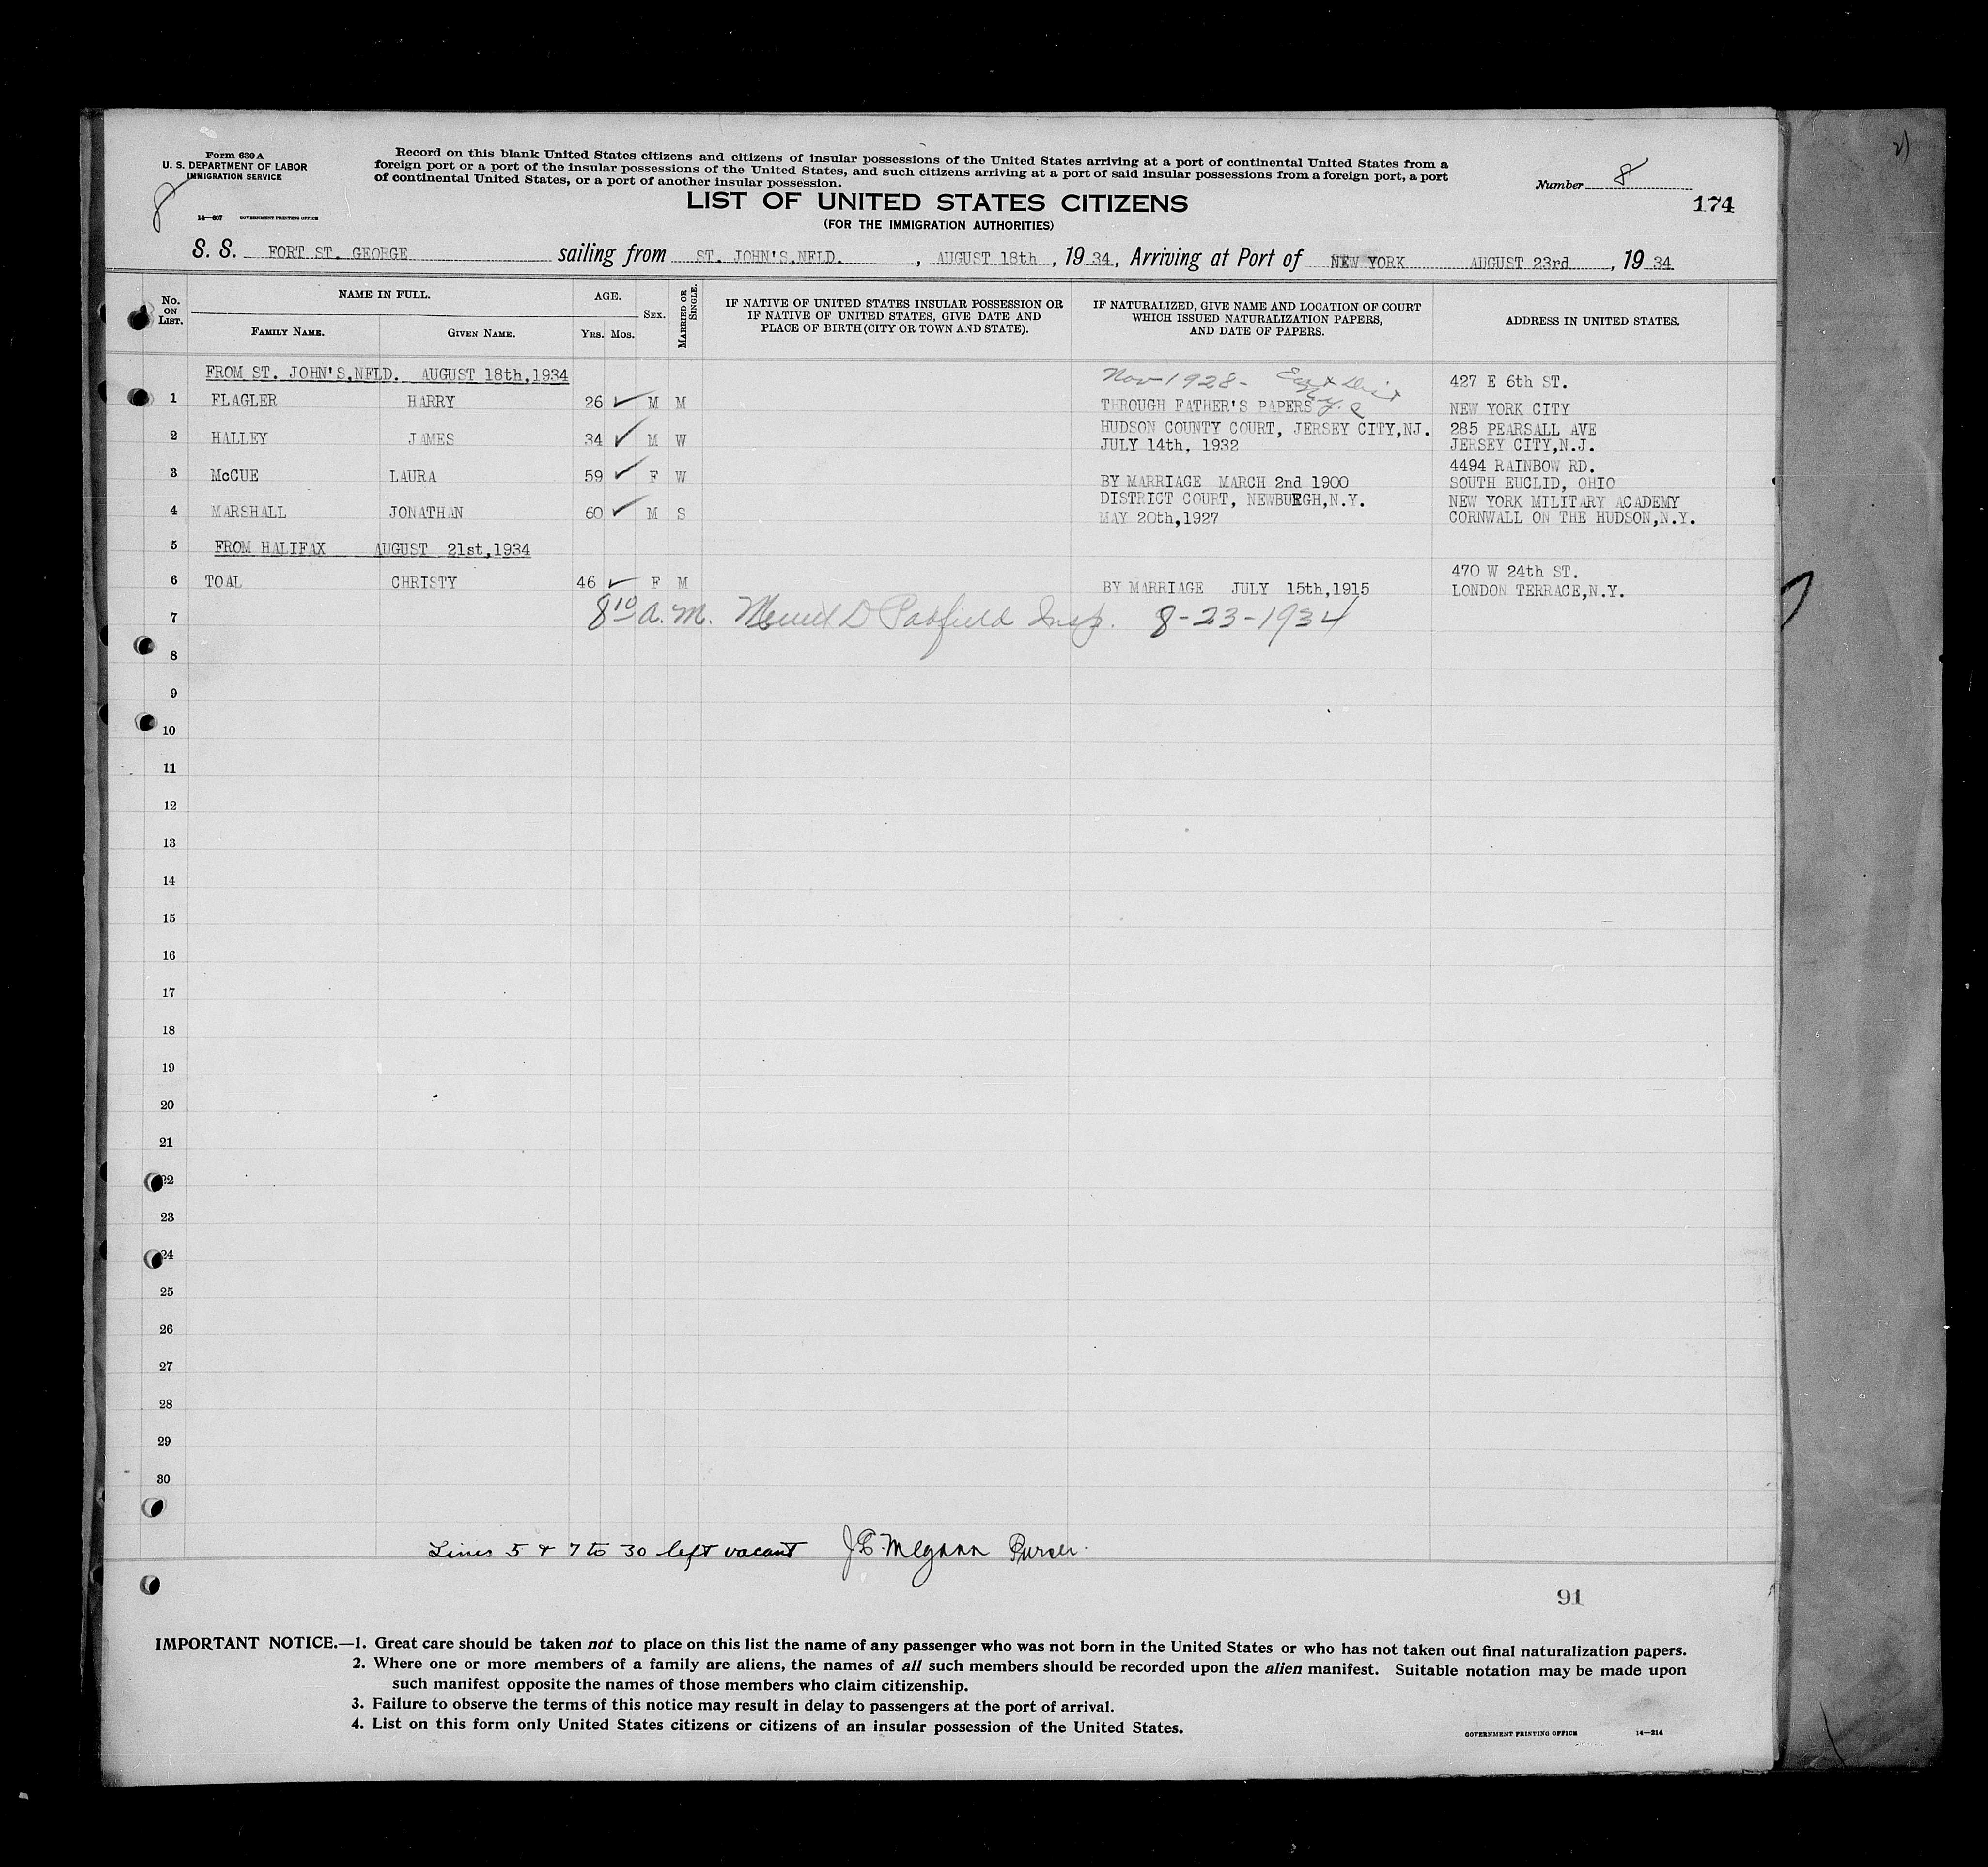 Form 630 A
U. S. DEPARTMENT OF LABOR
IMMIGRATION SERVICE
8
14—607 GOVERNMENT PRINTING OFFICE
Record on this blank United States citizens and citizens of insular possessions of the United States arriving at a port of continental United States from a
foreign port or a port of the insular possessions of the United States, and such citizens arriving at a port of said insular possessions from a foreign port, a port
of continental United States, or a port of another insular possession.
Number 8
174
LIST OF UNITED STATES CITIZENS
(FOR THE IMMIGRATION AUTHORITIES)
S. S. FORT ST. GEORGE sailing from ST. JOHN'S,NFLD. , AUGUST 18th , 19 34 , Arriving at Port of NEW YORK AUGUST 23rd , 19 34
No. ON LIST. NAME IN FULL. FAMILY NAME. GIVEN NAME. AGE. YRS. MOS. SEX. MARRIED OR SINGLE. IF NATIVE OF UNITED STATES INSULAR POSSESSION OR IF NATIVE OF UNITED STATES, GIVE DATE AND PLACE OF BIRTH (CITY OR TOWN AND STATE). IF NATURALIZED, GIVE NAME AND LOCATION OF COURT WHICH ISSUED NATURALIZATION PAPERS, AND DATE OF PAPERS. ADDRESS IN UNITED STATES.
FROM ST. JOHN'S,NFLD. AUGUST 18th,1934 Nov-1928- 427 E 6th ST.
1 FLAGLER HARRY 26 M M THROUGH FATHER'S PAPERS NEW YORK CITY
HUDSON COUNTY COURT, JERSEY CITY,NJ. 285 PEARSALL AVE
2 HALLEY JAMES 34 M W JULY 14th, 1932 JERSEY CITY,N.J.
4494 RAINBOW RD.
3 McCUE LAURA 59 F W BY MARRIAGE MARCH 2nd 1900 SOUTH EUCLID, OHIO
DISTRICT COURT, NEWBURGH,N.Y. NEW YORK MILITARY ACADEMY
4 MARSHALL JONATHAN 60 M S MAY 20th,1927 CORNWALL ON THE HUDSON,N.Y.
5 FROM HALIFAX AUGUST 21st,1934
470 W 24th ST.
6 TOAL CHRISTY 46 F M BY MARRIAGE JULY 15th,1915 LONDON TERRACE,N.Y.
7 8 10 A.M. D Insp. 8-23-1934
8
9
10
11
12
13
14
15
16
17
18
19
20
21
22
23
24
25
26
27
28
29
30
Lines 5 & 7 to 30 left vacant Purser.
91
IMPORTANT NOTICE.—1. Great care should be taken not to place on this list the name of any passenger who was not born in the United States or who has not taken out final naturalization papers.
2. Where one or more members of a family are aliens, the names of all such members should be recorded upon the alien manifest. Suitable notation may be made upon
such manifest opposite the names of those members who claim citizenship.
3. Failure to observe the terms of this notice may result in delay to passengers at the port of arrival.
4. List on this form only United States citizens or citizens of an insular possession of the United States.
GOVERNMENT PRINTING OFFICE 14—214